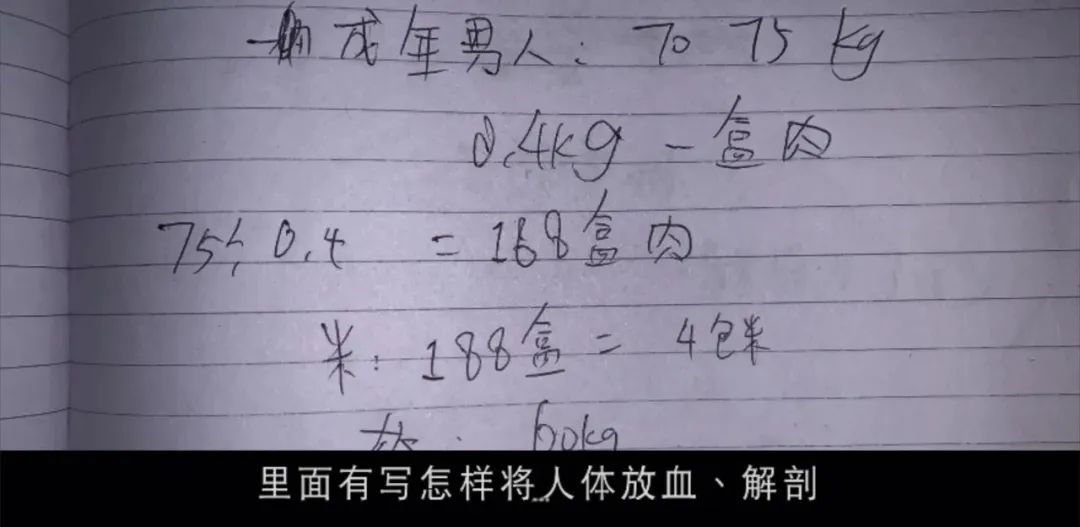 一 成年男人: 70 75 kg
0.4kg 一盒肉
75÷0.4 =168盒肉
米: 188盒 = 4包米
60kg
里面有写怎样将人体放血、解剖